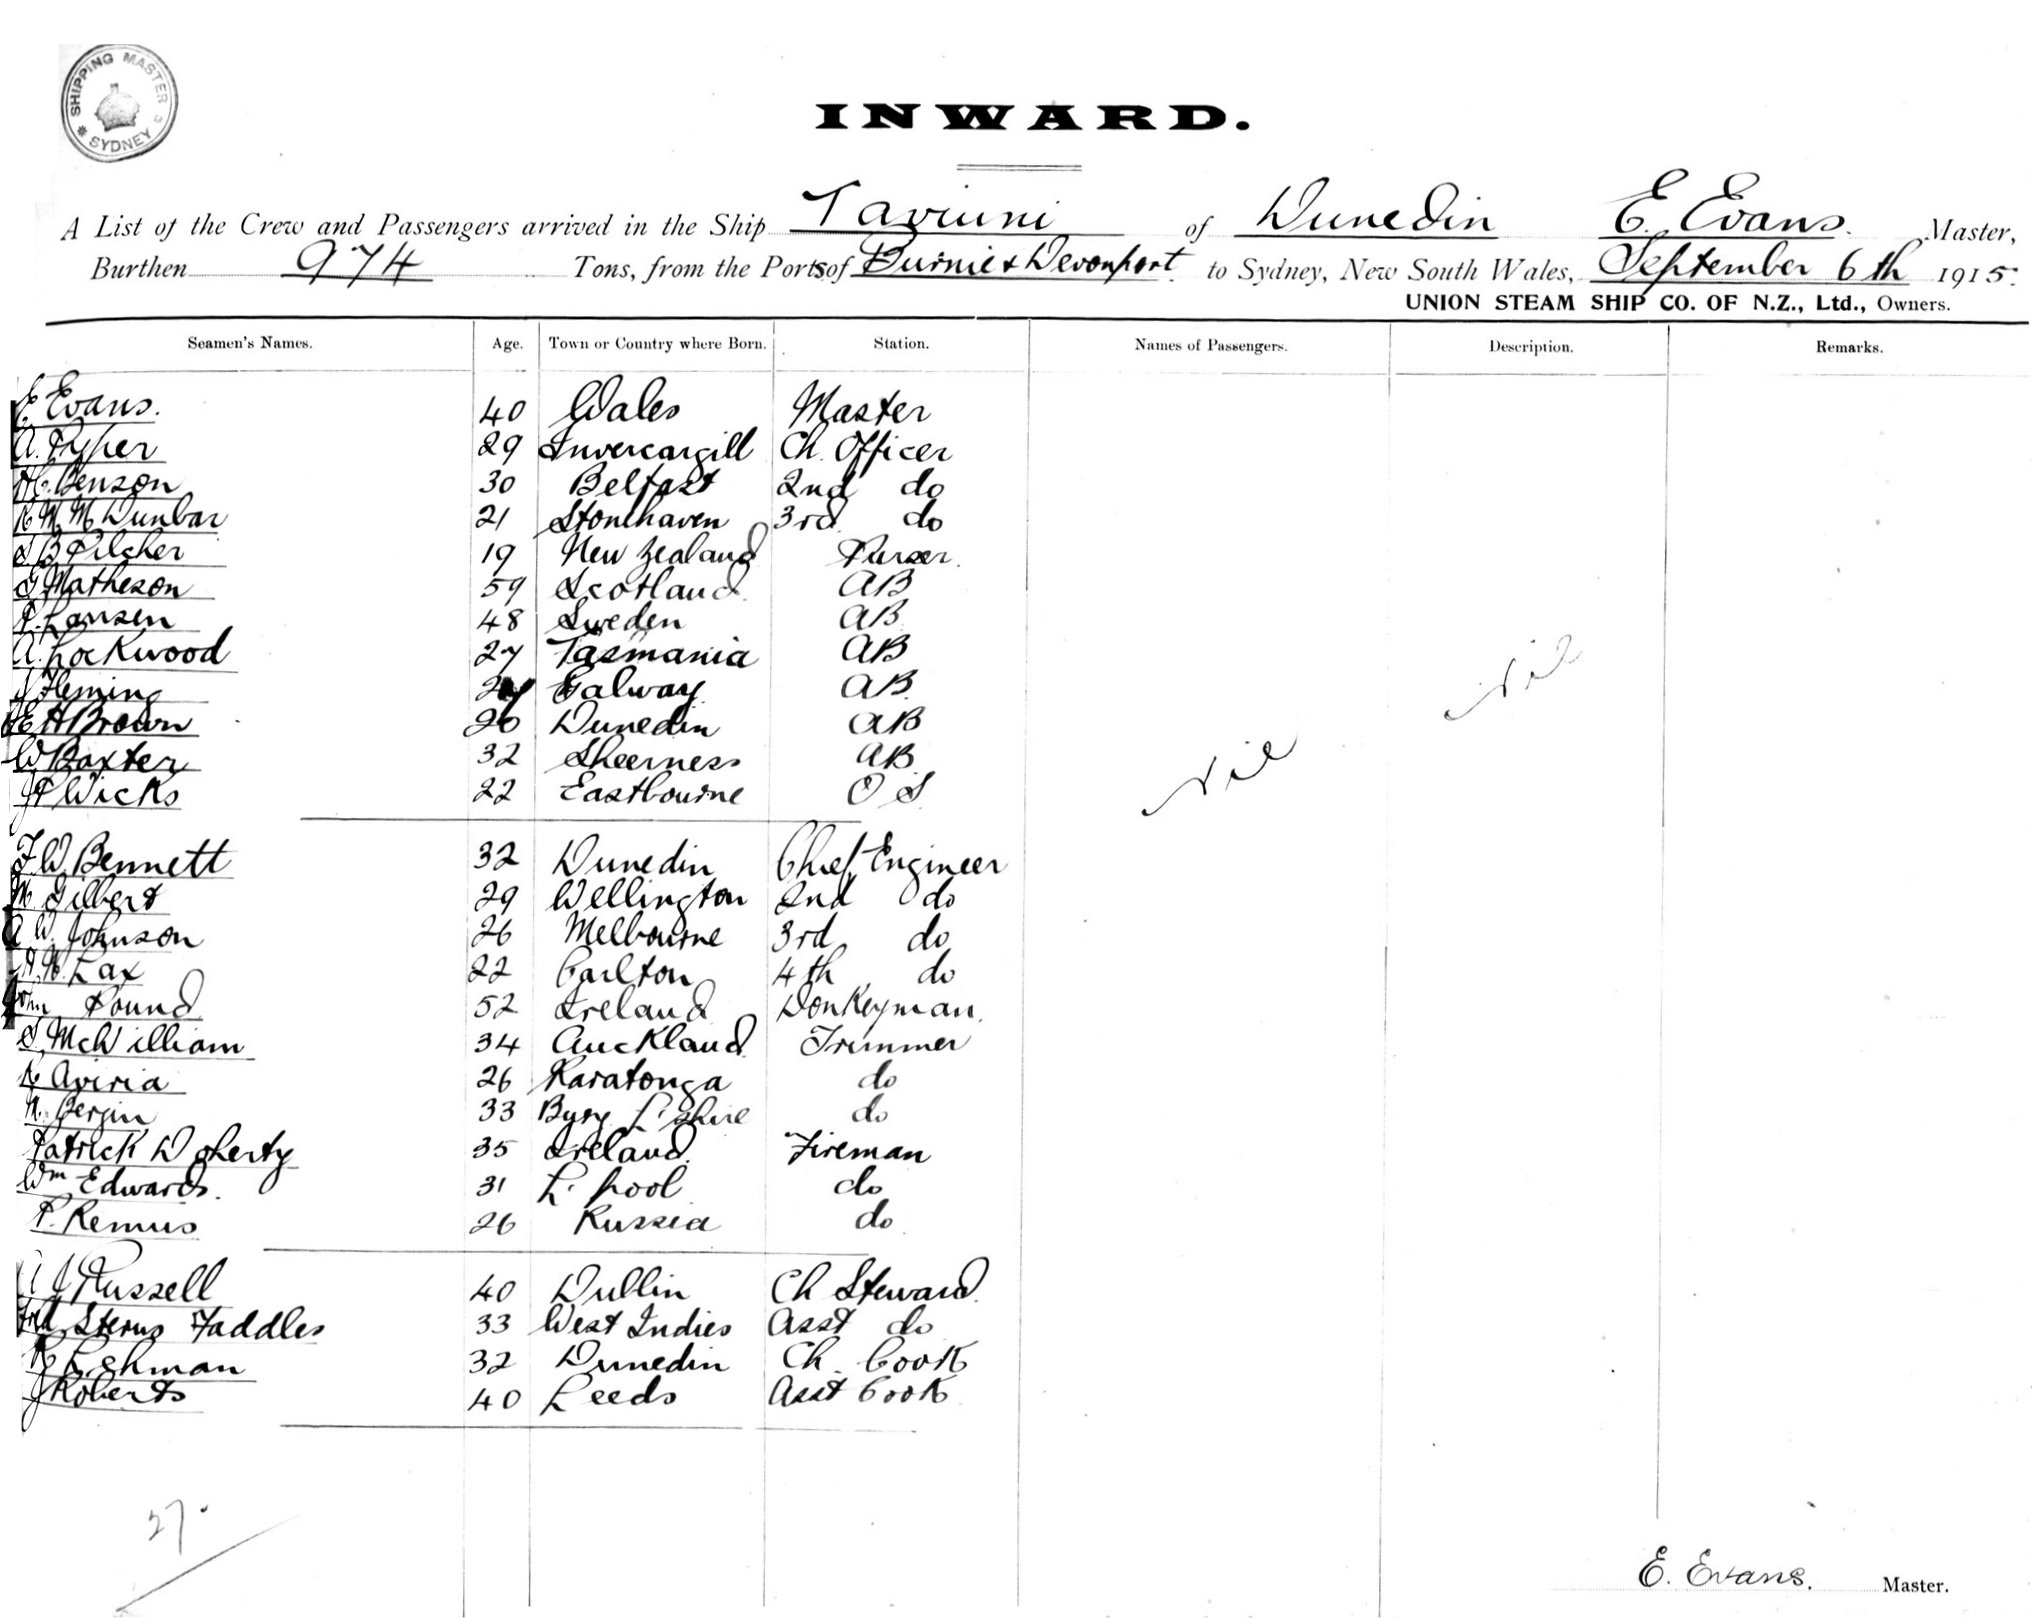 SHIPPING MASTER
SYDNEY
INWARD.
A List of the Crew and Passengers arrived in the Ship Taviuni of Dunedin E. Evans. Master,
Burthen 974 Tons, from the Ports of Burnie & Devonport to Sydney, New South Wales, September 6th 1915.
UNION STEAM SHIP CO. OF N.Z., Ltd., Owners.
Seamen's Names. Age. Town or Country where Born. Station. Names of Passengers. Description. Remarks.
E Evans. 40 Wales Master
A. Pyper 29 Invercargill Ch. Officer
Benson 30 Belfast 2nd do
R M M Dunbar 21 Stonehaven 3rd do
S B Pilcher 19 New Zealand Purser.
Matheson 59 Scotland AB
P. Larsen 48 Sweden AB
A. Lockwood 27 Tasmania AB
J Fleming Galway AB
E H Brown 20 Dunedin AB
W Baxter 32 Sheerness AB
Wicks 22 Eastbourne O S
Nil Nil
F W Bennett 32 Dunedin Chief Engineer
Gilbert 29 Wellington 2nd do
A W. Johnson 26 Melbourne 3rd do
Lax 22 Carlton 4th do
Pound 52 Ireland Donkeyman.
S McWilliam 34 Auckland Trimmer
Aviria 26 Raratonga do
M. Bergin 33 Bury L'shire do
Patrick Doherty 35 Ireland Fireman
Wm Edwards. 31 L'pool do
P. Remus 26 Russia do
J Russell 40 Dublin Ch Steward
Fred Sterns Faddles 33 West Indies Asst do
Lehman 32 Dunedin Ch. Cook
J Roberts 40 Leeds Asst Cook
27.
E. Evans. Master.